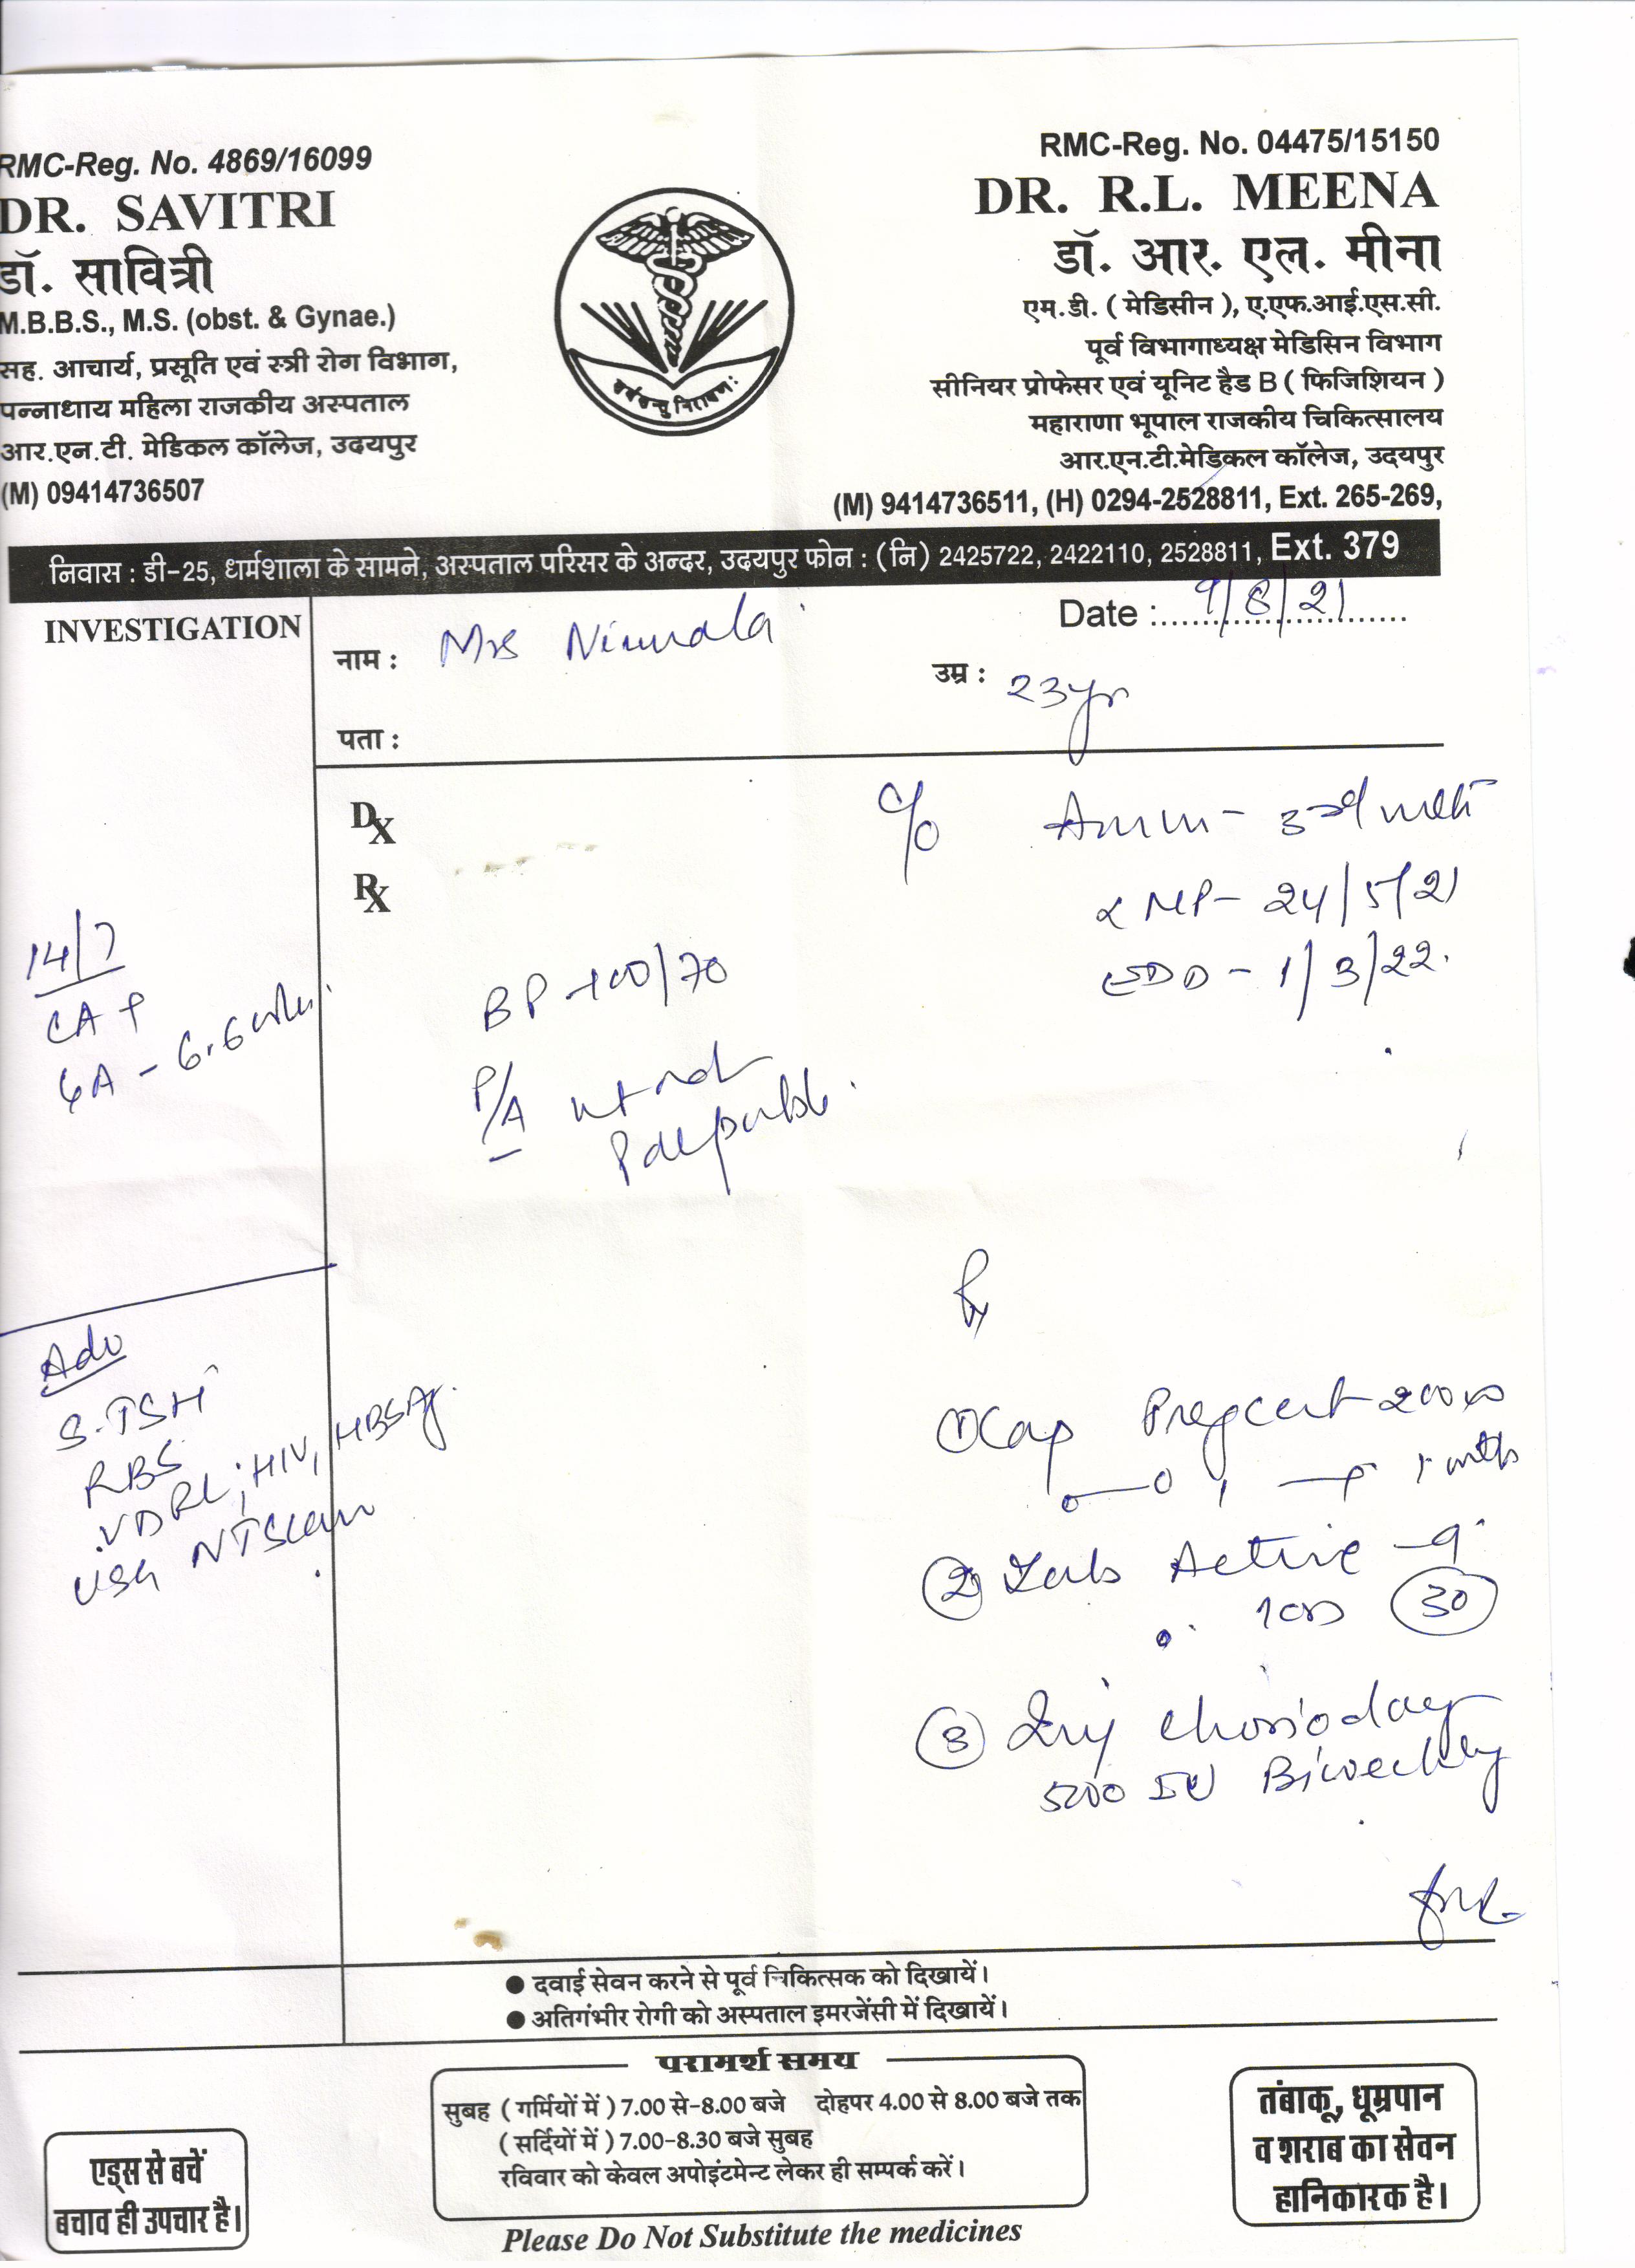 RMC-Reg. No. 4869/16099
DR. SAVITRI
डॉ. सावित्री
M.B.B.S., M.S. (obst. & Gynae.)
सह. आचार्य, प्रसूति एवं स्त्री रोग विभाग,
पन्नाधाय महिला राजकीय अस्पताल
आर.एन.टी. मेडिकल कॉलेज, उदयपुर
(M) 09414736507
RMC-Reg. No. 04475/15150
DR. R.L. MEENA
डॉ. आर. एल. मीना
एम.डी. ( मेडिसीन ), ए.एफ.आई.एस.सी.
पूर्व विभागाध्यक्ष मेडिसिन विभाग
सीनियर प्रोफेसर एवं यूनिट हैड B ( फिजिशियन )
महाराणा भूपाल राजकीय चिकित्सालय
आर.एन.टी.मेडिकल कॉलेज, उदयपुर
(M) 9414736511, (H) 0294-2528811, Ext. 265-269,
निवास : डी-25, धर्मशाला के सामने, अस्पताल परिसर के अन्दर, उदयपुर फोन : (नि) 2425722, 2422110, 2528811, Ext. 379
INVESTIGATION
Date : 9/8/21
नाम : Mrs Nirmala
उम्र : 23yr
पता :
Dx
Rx
c/o
LMP - 24/5/21
EDD - 1/3/22.
14/7
GA - 6.6 wks
BP - 100/70
P/A ut not
Palpable.
Adv
S.TSH
RBS
VDRL, HIV, HBSAg.
USG NT Scan
Rx
① Cap Pregcert 200
② Tab Active - 9
1 OD 30
③ Inj
5000 IU Biweekly
● दवाई सेवन करने से पूर्व चिकित्सक को दिखायें।
● अतिगंभीर रोगी को अस्पताल इमरजेंसी में दिखायें।
परामर्श समय
सुबह ( गर्मियों में ) 7.00 से-8.00 बजे दोहपर 4.00 से 8.00 बजे तक
( सर्दियों में ) 7.00-8.30 बजे सुबह
रविवार को केवल अपोइंटमेन्ट लेकर ही सम्पर्क करें।
एड्स से बचें
बचाव ही उपचार है।
तंबाकू, धूम्रपान
व शराब का सेवन
हानिकारक है।
Please Do Not Substitute the medicines